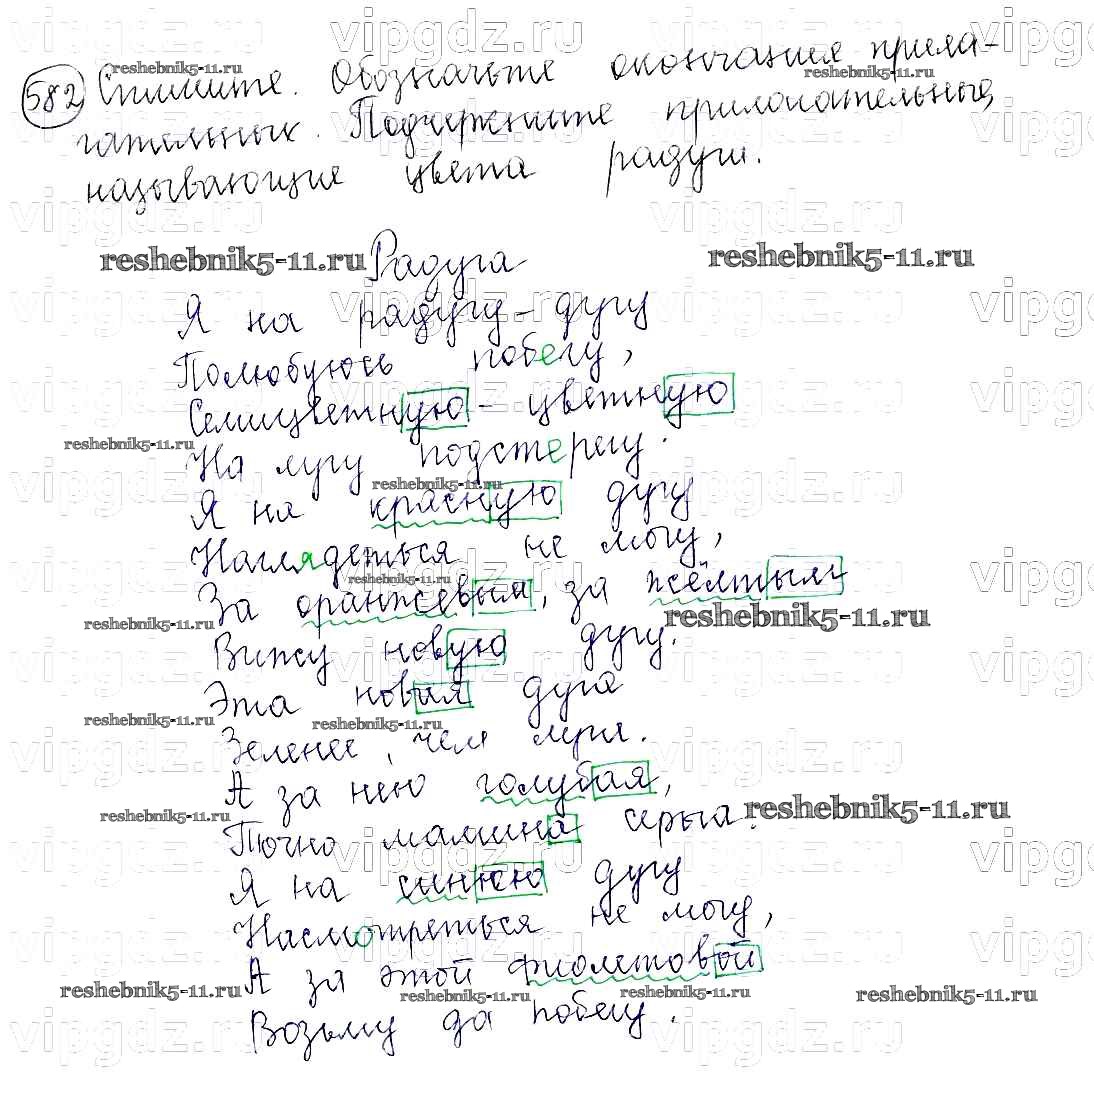 582 Спишите. Обозначьте окончания прила-
гательных. Подчеркните прилагательные,
называющие цвета радуги.
Радуга
Я на радугу-дугу
Полюбуюсь побегу,
Семицветную-цветную
На лугу подстерегу.
Я на красную дугу
Наглядеться не могу,
За оранжевый, за жёлтым
Вижу новую дугу.
Эта новая дуга
Зеленее, чем луга.
А за нею голубая,
Точно мамина серьга.
Я на синюю дугу
Насмотреться не могу,
А за этой фиолетовой
Возьму да побегу.
vipgdz.ru
reshebnik5-11.ru